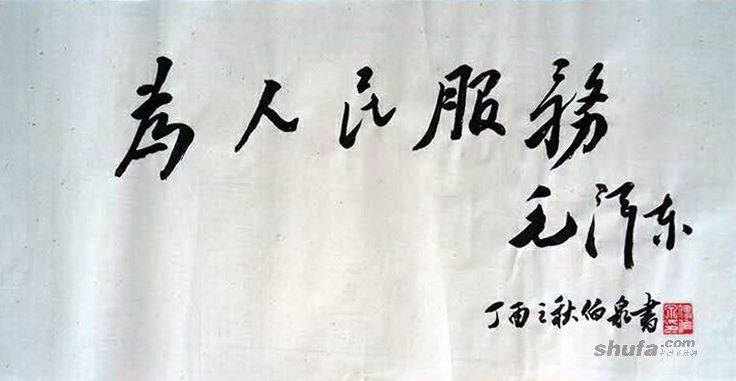 為人民服務
毛澤东
丁酉之秋伯泉書
shufa.com